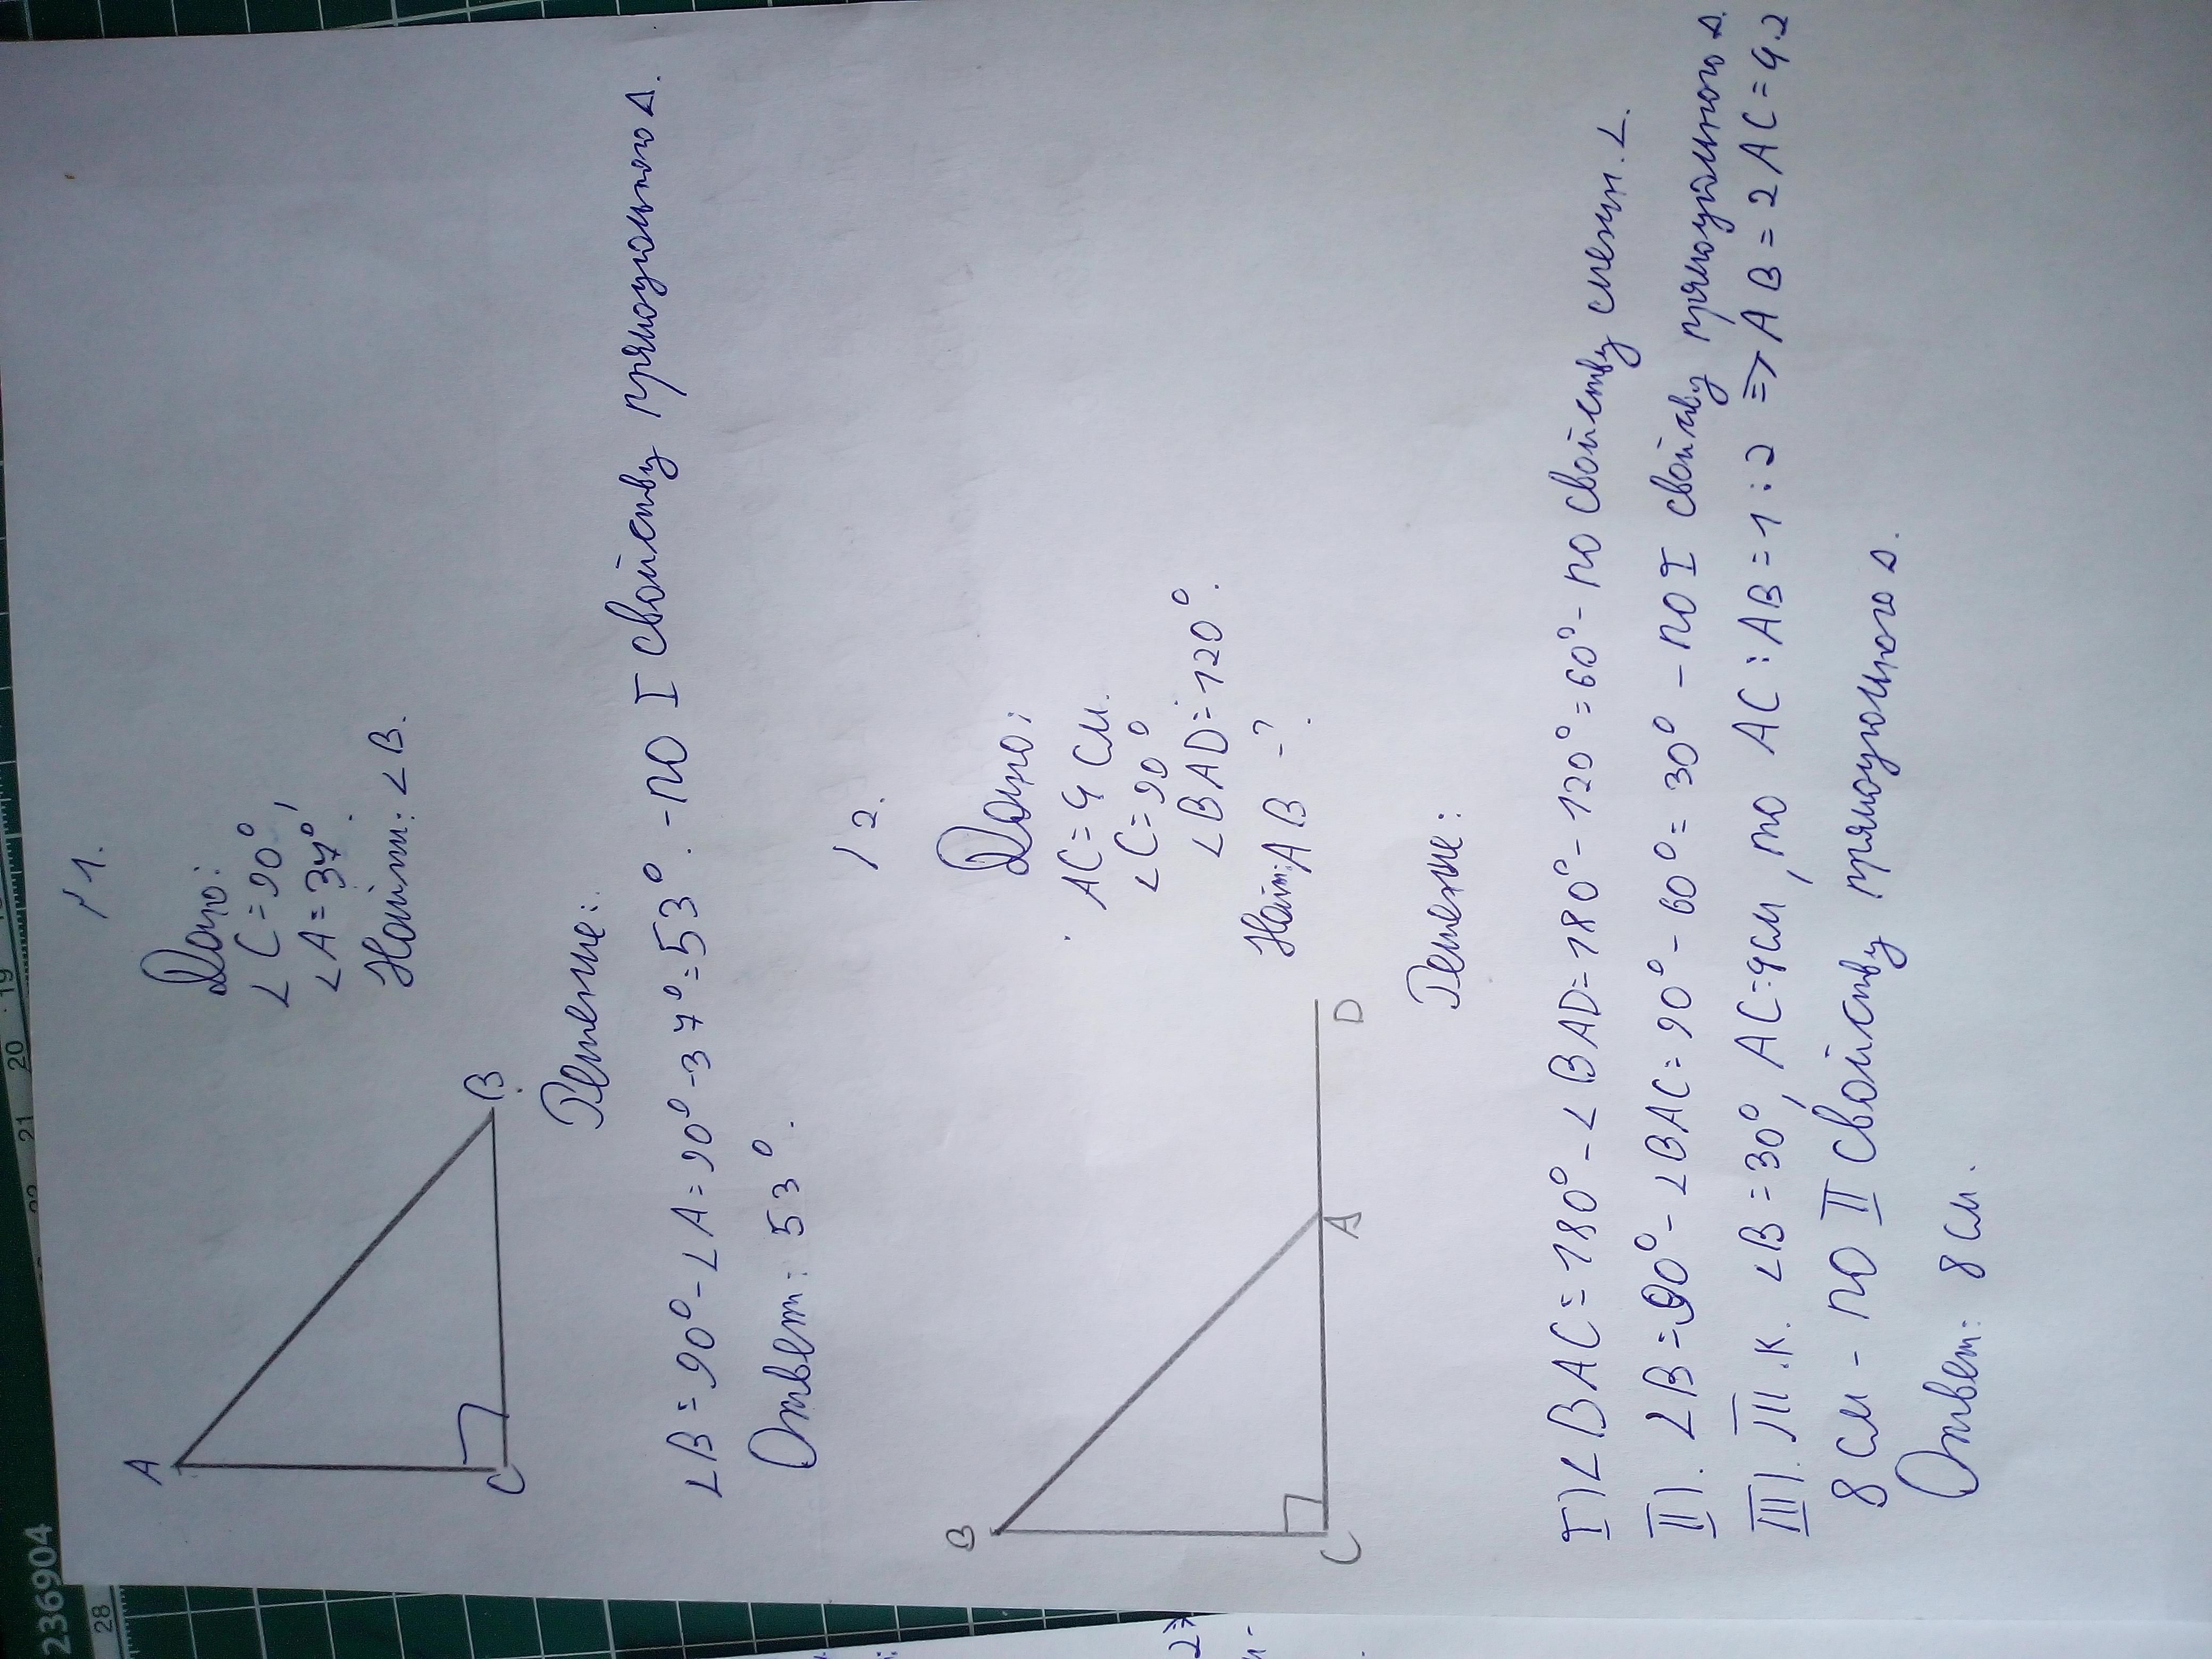 №1.
Дано:
∠C=90°,
∠A=37°.
Найти: ∠B.
A
C
B
Решение:
∠B=90°-∠A=90°-37°=53°.-по I свойству прямоугольного Δ.
Ответ: 53°.
№2.
Дано:
AC=4 см.
∠C=90°
∠BAD=120°.
Найти: AB -?
B
C
A
D
Решение:
I) ∠BAC=180°-∠BAD=180°-120°=60°-по свойству смежн. ∠.
II). ∠B=90°-∠BAC=90°-60°=30°-по I свойству прямоугольного Δ.
III). Т.к. ∠B=30°, AC=4см, то AC:AB=1:2 => AB=2AC=4·2
8 см - по II свойству прямоугольного Δ.
Ответ: 8 см.
236904
28
21
20
19
27